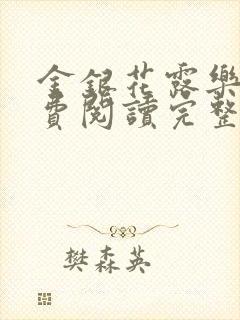 金銀花露樂
費閱讀完整
樊森英